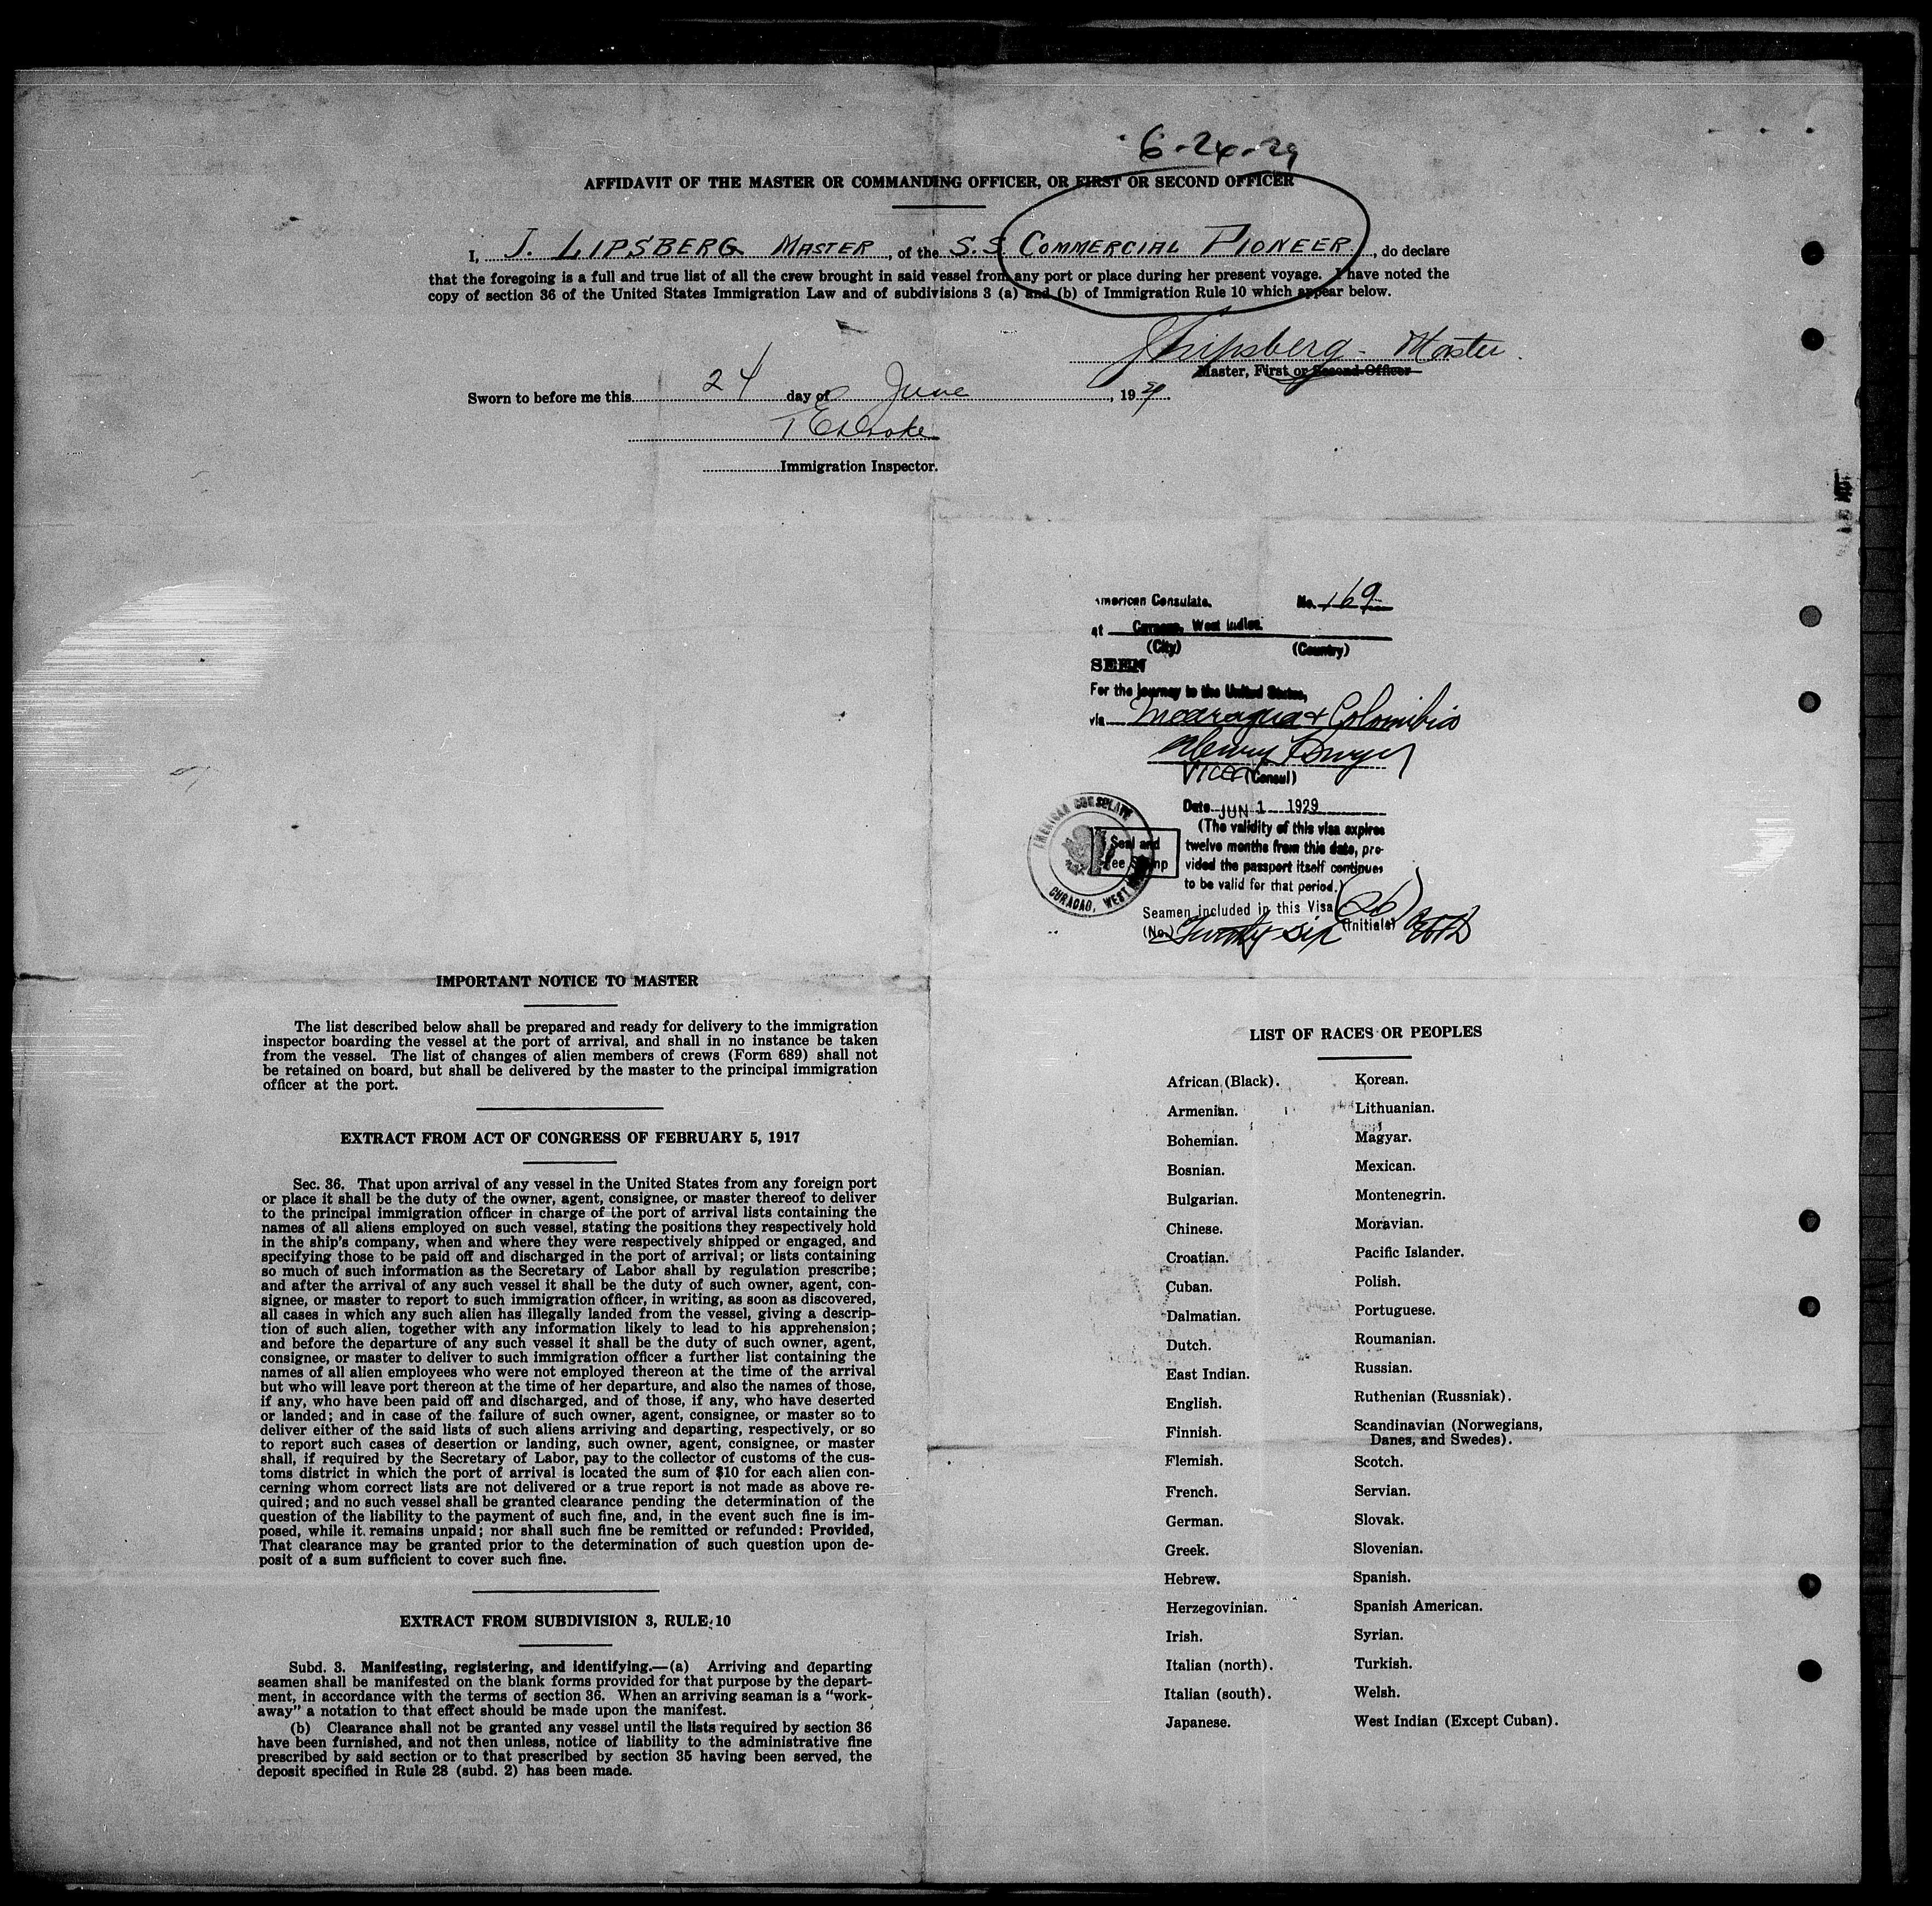 6-24-29
AFFIDAVIT OF THE MASTER OR COMMANDING OFFICER, OR FIRST OR SECOND OFFICER
I, J. LIPSBERG MASTER, of the S.S. COMMERCIAL PIONEER, do declare
that the foregoing is a full and true list of all the crew brought in said vessel from any port or place during her present voyage. I have noted the
copy of section 36 of the United States Immigration Law and of subdivisions 3 (a) and (b) of Immigration Rule 10 which appear below.
JLipsberg - Master
Master, First or Second Officer
Sworn to before me this 24 day of June, 1929.
Immigration Inspector.
American Consulate. No. 169
at Curacao, West Indies.
(City) (Country)
SEEN
For the journey to the United States,
via Nicaragua & Colombia
Henry
Vice (Consul)
Date JUN 1 1929
(The validity of this visa expires
twelve months from this date, pro-
vided the passport itself continues
to be valid for that period.)
AMERICAN CONSULATE
CURACAO, WEST
Seal and
Fee Stamp
Seamen included in this Visa (26)
(No.) Twenty six (Initials)
IMPORTANT NOTICE TO MASTER
The list described below shall be prepared and ready for delivery to the immigration
inspector boarding the vessel at the port of arrival, and shall in no instance be taken
from the vessel. The list of changes of alien members of crews (Form 689) shall not
be retained on board, but shall be delivered by the master to the principal immigration
officer at the port.
EXTRACT FROM ACT OF CONGRESS OF FEBRUARY 5, 1917
Sec. 36. That upon arrival of any vessel in the United States from any foreign port
or place it shall be the duty of the owner, agent, consignee, or master thereof to deliver
to the principal immigration officer in charge of the port of arrival lists containing the
names of all aliens employed on such vessel, stating the positions they respectively hold
in the ship's company, when and where they were respectively shipped or engaged, and
specifying those to be paid off and discharged in the port of arrival; or lists containing
so much of such information as the Secretary of Labor shall by regulation prescribe;
and after the arrival of any such vessel it shall be the duty of such owner, agent, con-
signee, or master to report to such immigration officer, in writing, as soon as discovered,
all cases in which any such alien has illegally landed from the vessel, giving a descrip-
tion of such alien, together with any information likely to lead to his apprehension;
and before the departure of any such vessel it shall be the duty of such owner, agent,
consignee, or master to deliver to such immigration officer a further list containing the
names of all alien employees who were not employed thereon at the time of the arrival
but who will leave port thereon at the time of her departure, and also the names of those,
if any, who have been paid off and discharged, and of those, if any, who have deserted
or landed; and in case of the failure of such owner, agent, consignee, or master so to
deliver either of the said lists of such aliens arriving and departing, respectively, or so
to report such cases of desertion or landing, such owner, agent, consignee, or master
shall, if required by the Secretary of Labor, pay to the collector of customs of the cus-
toms district in which the port of arrival is located the sum of $10 for each alien con-
cerning whom correct lists are not delivered or a true report is not made as above re-
quired; and no such vessel shall be granted clearance pending the determination of the
question of the liability to the payment of such fine, and, in the event such fine is im-
posed, while it remains unpaid; nor shall such fine be remitted or refunded: Provided,
That clearance may be granted prior to the determination of such question upon de-
posit of a sum sufficient to cover such fine.
EXTRACT FROM SUBDIVISION 3, RULE 10
Subd. 3. Manifesting, registering, and identifying.—(a) Arriving and departing
seamen shall be manifested on the blank forms provided for that purpose by the depart-
ment, in accordance with the terms of section 36. When an arriving seaman is a "work-
away" a notation to that effect should be made upon the manifest.
(b) Clearance shall not be granted any vessel until the lists required by section 36
have been furnished, and not then unless, notice of liability to the administrative fine
prescribed by said section or to that prescribed by section 35 having been served, the
deposit specified in Rule 28 (subd. 2) has been made.
LIST OF RACES OR PEOPLES
African (Black).
Armenian.
Bohemian.
Bosnian.
Bulgarian.
Chinese.
Croatian.
Cuban.
Dalmatian.
Dutch.
East Indian.
English.
Finnish.
Flemish.
French.
German.
Greek.
Hebrew.
Herzegovinian.
Irish.
Italian (north).
Italian (south).
Japanese.
Korean.
Lithuanian.
Magyar.
Mexican.
Montenegrin.
Moravian.
Pacific Islander.
Polish.
Portuguese.
Roumanian.
Russian.
Ruthenian (Russniak).
Scandinavian (Norwegians,
Danes, and Swedes).
Scotch.
Servian.
Slovak.
Slovenian.
Spanish.
Spanish American.
Syrian.
Turkish.
Welsh.
West Indian (Except Cuban).